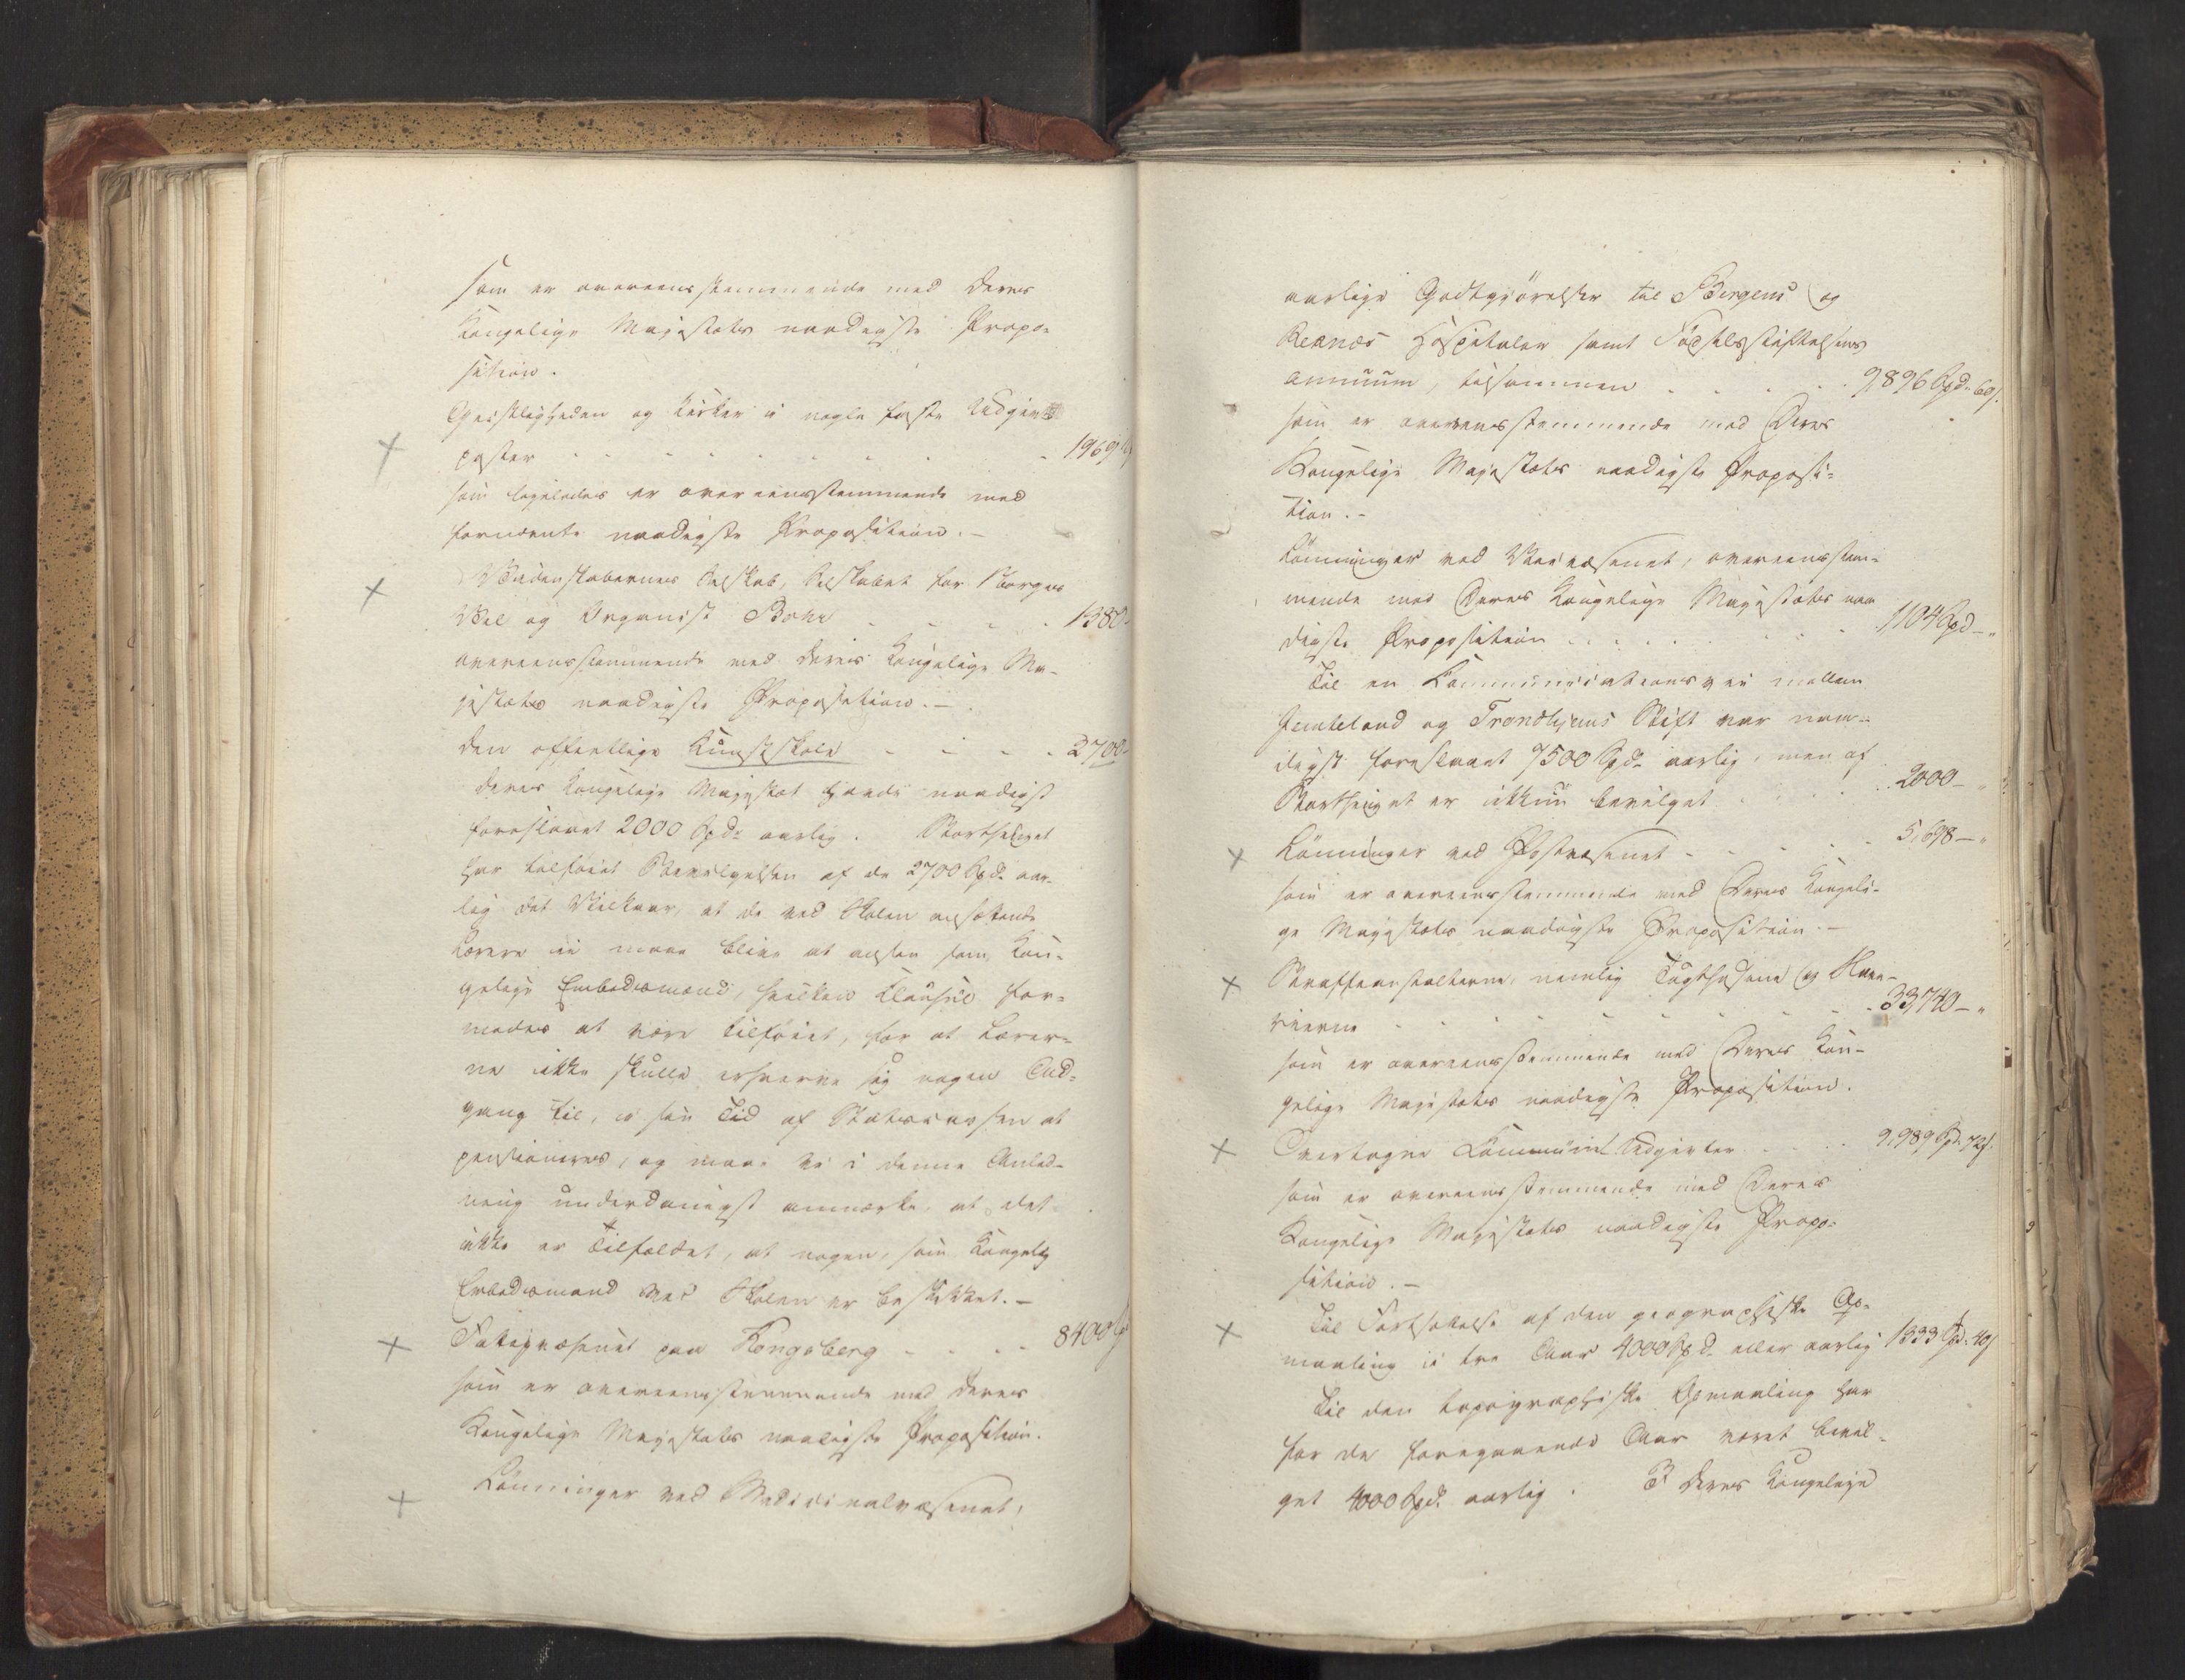 som er overeensstemmende med Deres
Kongelige Majestæts naadigste Propo-
sition.
Geistligheden og Kirker i nogle faste Udgivts
poster - - - - - - - - 1969
som ligeledes er overeensstemmende med
fornævnte naadigste Proposition. -
Videnskabernes Selskab, Selskabet for Norges
Vel og Organist - - - - 1380-
overeensstemmende med Deres Kongelige Ma-
jestæts naadigste Proposition. -
den offentlige Kunstskole - - - - 2700-
Deres Kongelige Majestæt havde naadigst
foreslaaet 2000 Spd. aarlig. Storthinget
har tilføiet Bevilgelsen af de 2700 Spd. aar-
lig det Vilkaar, at de ved Skolen ansættende
Lærere ei maae blive at ansee som Kon-
gelige Embedsmænd, hvilken Clausul for-
modes at være tilføiet, for at Lærer-
ne ikke skulle erhverve sig nogen Ad-
gang til, i sin Tid af Statscassen at
pensioneres, og maae vi i denne Anled-
ning underdanigst anmærke, at det
ikke er Tilfældet, at nogen, som Kongelig
Embedsmand ved Skolen er beskikket. -
Fattigvæsenet paa Kongsberg - - - - 8400
som er overeensstemmende med Deres
Kongelige Majestæts naadigste Proposition.
Lønninger ved Medicinalvæsenet,
aarlige Godtgjörelser til Bergens og
Reknæs Hospitaler samt Födselsstiftelsens
annuum, tilsammen - - - - 9,896 Spd. 69 s.
som er overeensstemmende med Deres
Kongelige Majestæts naadigste Proposi-
tion. -
Lönninger ved Veivæsenet, overeensstem-
mende med Deres Kongelige Majestæts naa
digste Proposition - - - - 1,104 Spd - "
Til en Communicationsvei mellem
Jemteland og Trondhjems Stift var naa-
digst foreslaaet 7500 Spd. aarlig, men af
Storthinget er ikkun bevilget - - - - 2000 - "
Lönninger ved Postvæsenet - - - - 5,698 - "
som er overeensstemmende med Deres Kongeli-
ge Majestæts naadigste Proposition. -
Straffeanstalterne, nemlig Tugthusene og Slave-
rierne - - - - - - - - 33,740 - "
som er overeensstemmende med Deres Kon-
gelige Majestæts naadigste Proposition.
Overtagne Communal Udgivter - - - 9,989 Spd. 72 s.
som er overeensstemmende med Deres
Kongelige Majestæts naadigste Propo-
sition. -
Til Fortsættelse af den geographiske Op-
maaling i tre Aar 4000 Spd. eller aarlig 1333 Spd. 40 s
Til den topographiske Opmaaling har
for de foregaaende Aar været bevil-
get 4000 Spd. aarlig. I Deres Kongelige